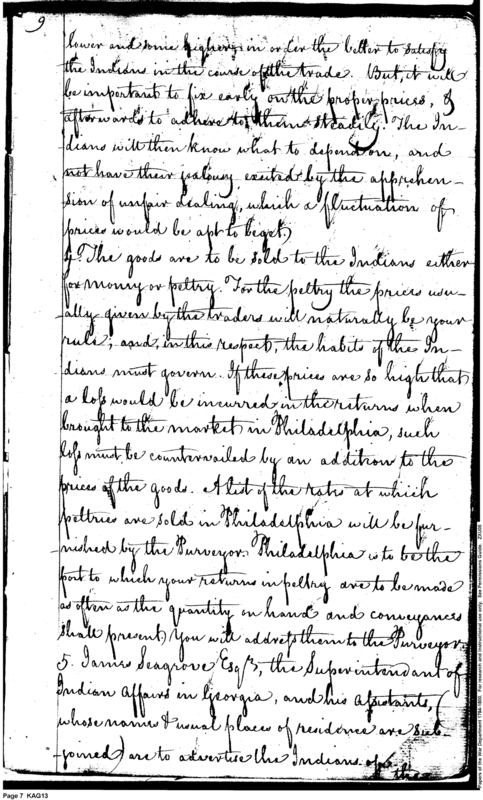 9
lower and some higher, in order the better to satisfy
the Indians in the course of the trade. But, it will
be important to fix early on the proper prices, &
afterwards to adhere to them steadily. The In-
dians will then know what to depend on, and
not have their jealousy excited by the apprehen-
sion of unfair dealing, which a fluctuation of
prices would be apt to beget.)
4. The goods are to be sold to the Indians either
for money or peltry. For the peltry the prices usu-
ally given by the traders will naturally be your
rule; and, in this respect, the habits of the In-
dians must govern. If these prices are so high that
a loss would be incurred in the returns when
brought to the market in Philadelphia, such
loss must be countervailed by an addition to the
prices of the goods. A list of the rates at which
peltries are sold in Philadelphia will be fur-
nished by the Purveyor. Philadelphia is to be the
port to which your returns in peltry are to be made
as often as the quantity on hand and conveyances
shall present) You will address them to the Purveyor.
5. James Seagrove Esqr, the Superintendant of
Indian Affairs in Georgia, and his Assistants, (
whose names & usual places of residence are sub-
joined) are to advertise the Indians of
the
Page 7 KAG13
Papers of the War Department 1784-1800. For research and instructional use only. See Permissions Guide